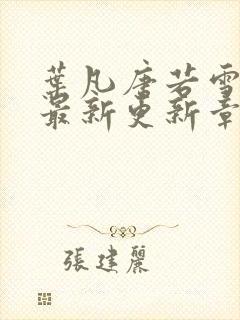 葉凡唐若雪
最新更新章
張建麗